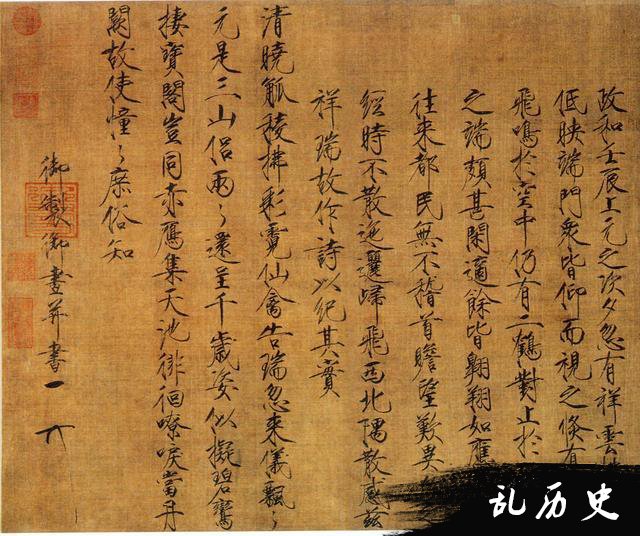 政和壬辰上元之次夕忽有祥雲
低映端門衆皆仰而視之倐有
飛鳴於空中仍有二鶴對止於
之端頗甚閑適餘皆翱翔如應
往來都民無不稽首瞻望歎異
經時不散迤邐歸飛西北隅散感茲
祥瑞故作詩以紀其實
清曉觚稜拂彩霓仙禽告瑞忽來儀飄〻
元是三山侣兩〻還呈千歲姿似擬碧鸞
棲寶閣豈同赤鴈集天池徘徊嘹唳當丹
闕故使憧〻庶俗知
御製御畫并書
乱历史